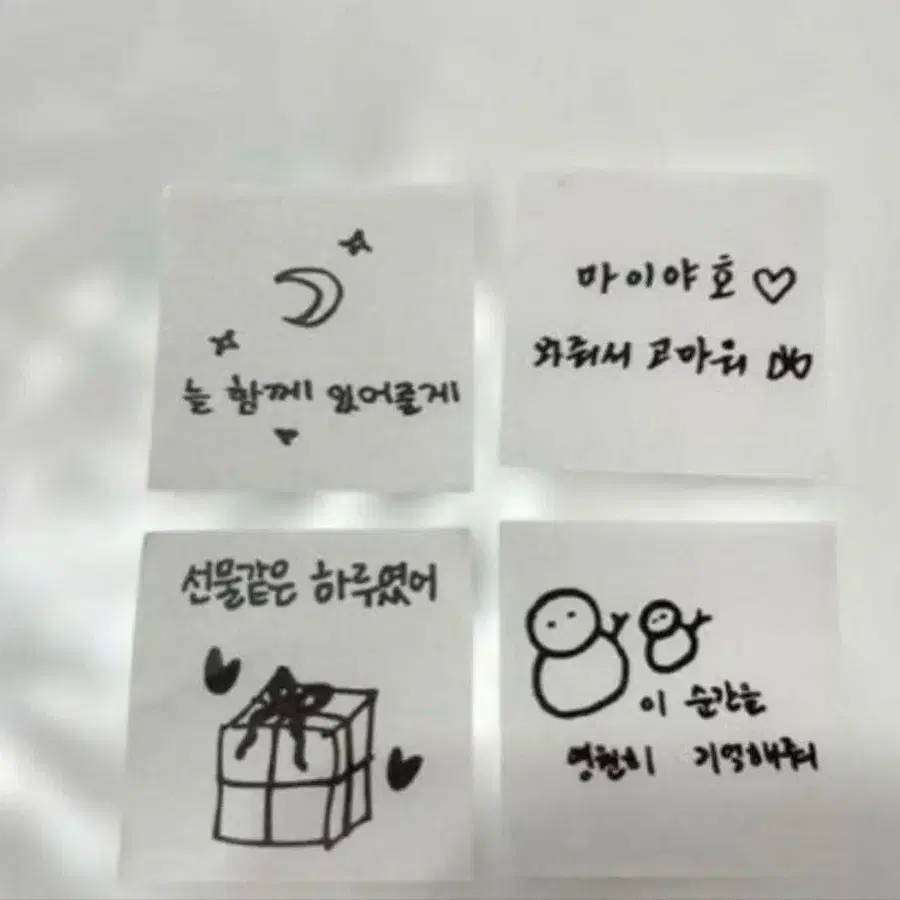 늘 함께 있어줄게
마이야호♡
와줘서 고마워
선물같은 하루였어
이 순간을
영원히 기억해줘